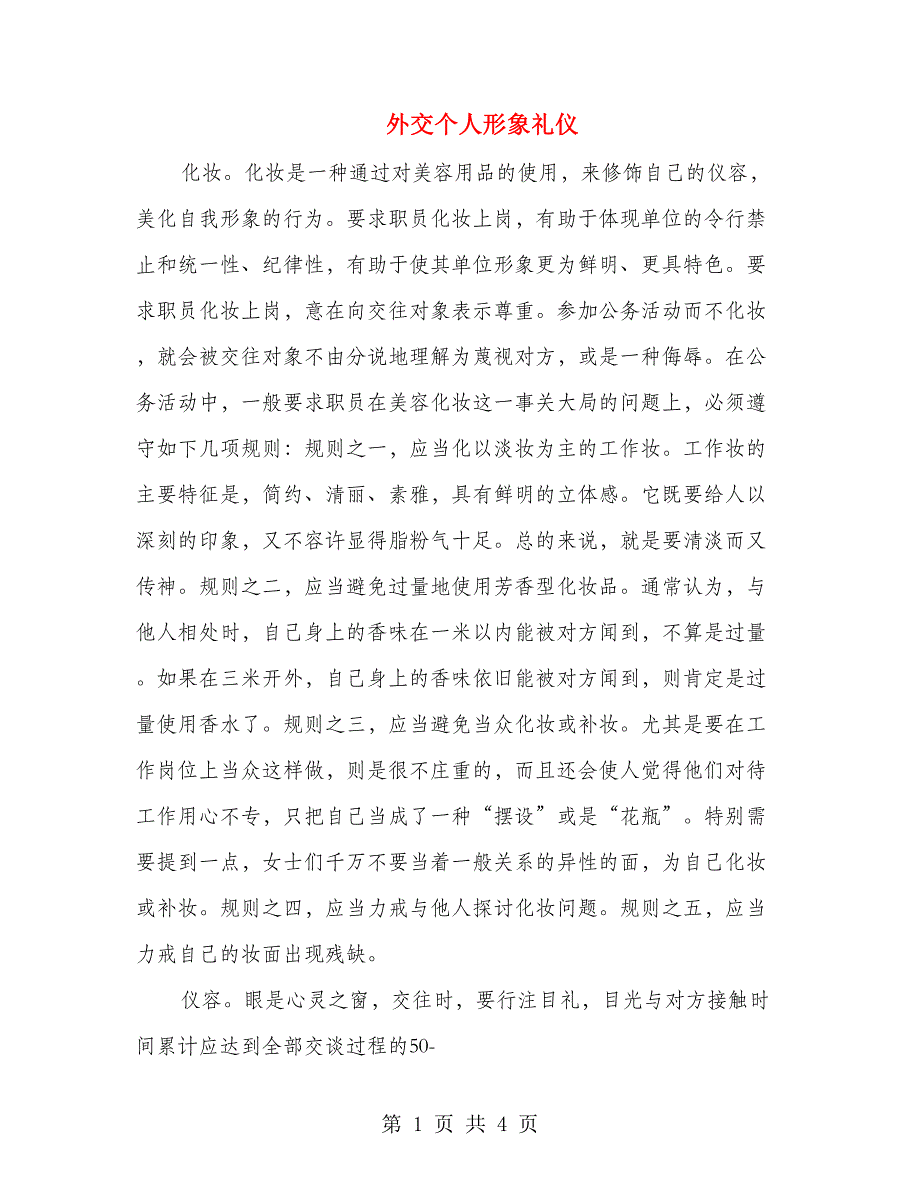 外交个人形象礼仪
化妆。化妆是一种通过对美容用品的使用，来修饰自己的仪容，
美化自我形象的行为。要求职员化妆上岗，有助于体现单位的令行禁
止和统一性、纪律性，有助于使其单位形象更为鲜明、更具特色。要
求职员化妆上岗，意在向交往对象表示尊重。参加公务活动而不化妆
，就会被交往对象不由分说地理解为蔑视对方，或是一种侮辱。在公
务活动中，一般要求职员在美容化妆这一事关大局的问题上，必须遵
守如下几项规则：规则之一，应当化以淡妆为主的工作妆。工作妆的
主要特征是，简约、清丽、素雅，具有鲜明的立体感。它既要给人以
深刻的印象，又不容许显得脂粉气十足。总的来说，就是要清淡而又
传神。规则之二，应当避免过量地使用芳香型化妆品。通常认为，与
他人相处时，自己身上的香味在一米以内能被对方闻到，不算是过量
。如果在三米开外，自己身上的香味依旧能被对方闻到，则肯定是过
量使用香水了。规则之三，应当避免当众化妆或补妆。尤其是要在工
作岗位上当众这样做，则是很不庄重的，而且还会使人觉得他们对待
工作用心不专，只把自己当成了一种“摆设”或是“花瓶”。特别需
要提到一点，女士们千万不要当着一般关系的异性的面，为自己化妆
或补妆。规则之四，应当力戒与他人探讨化妆问题。规则之五，应当
力戒自己的妆面出现残缺。
仪容。眼是心灵之窗，交往时，要行注目礼，目光与对方接触时
间累计应达到全部交谈过程的50-
第 1 页 共 4 页